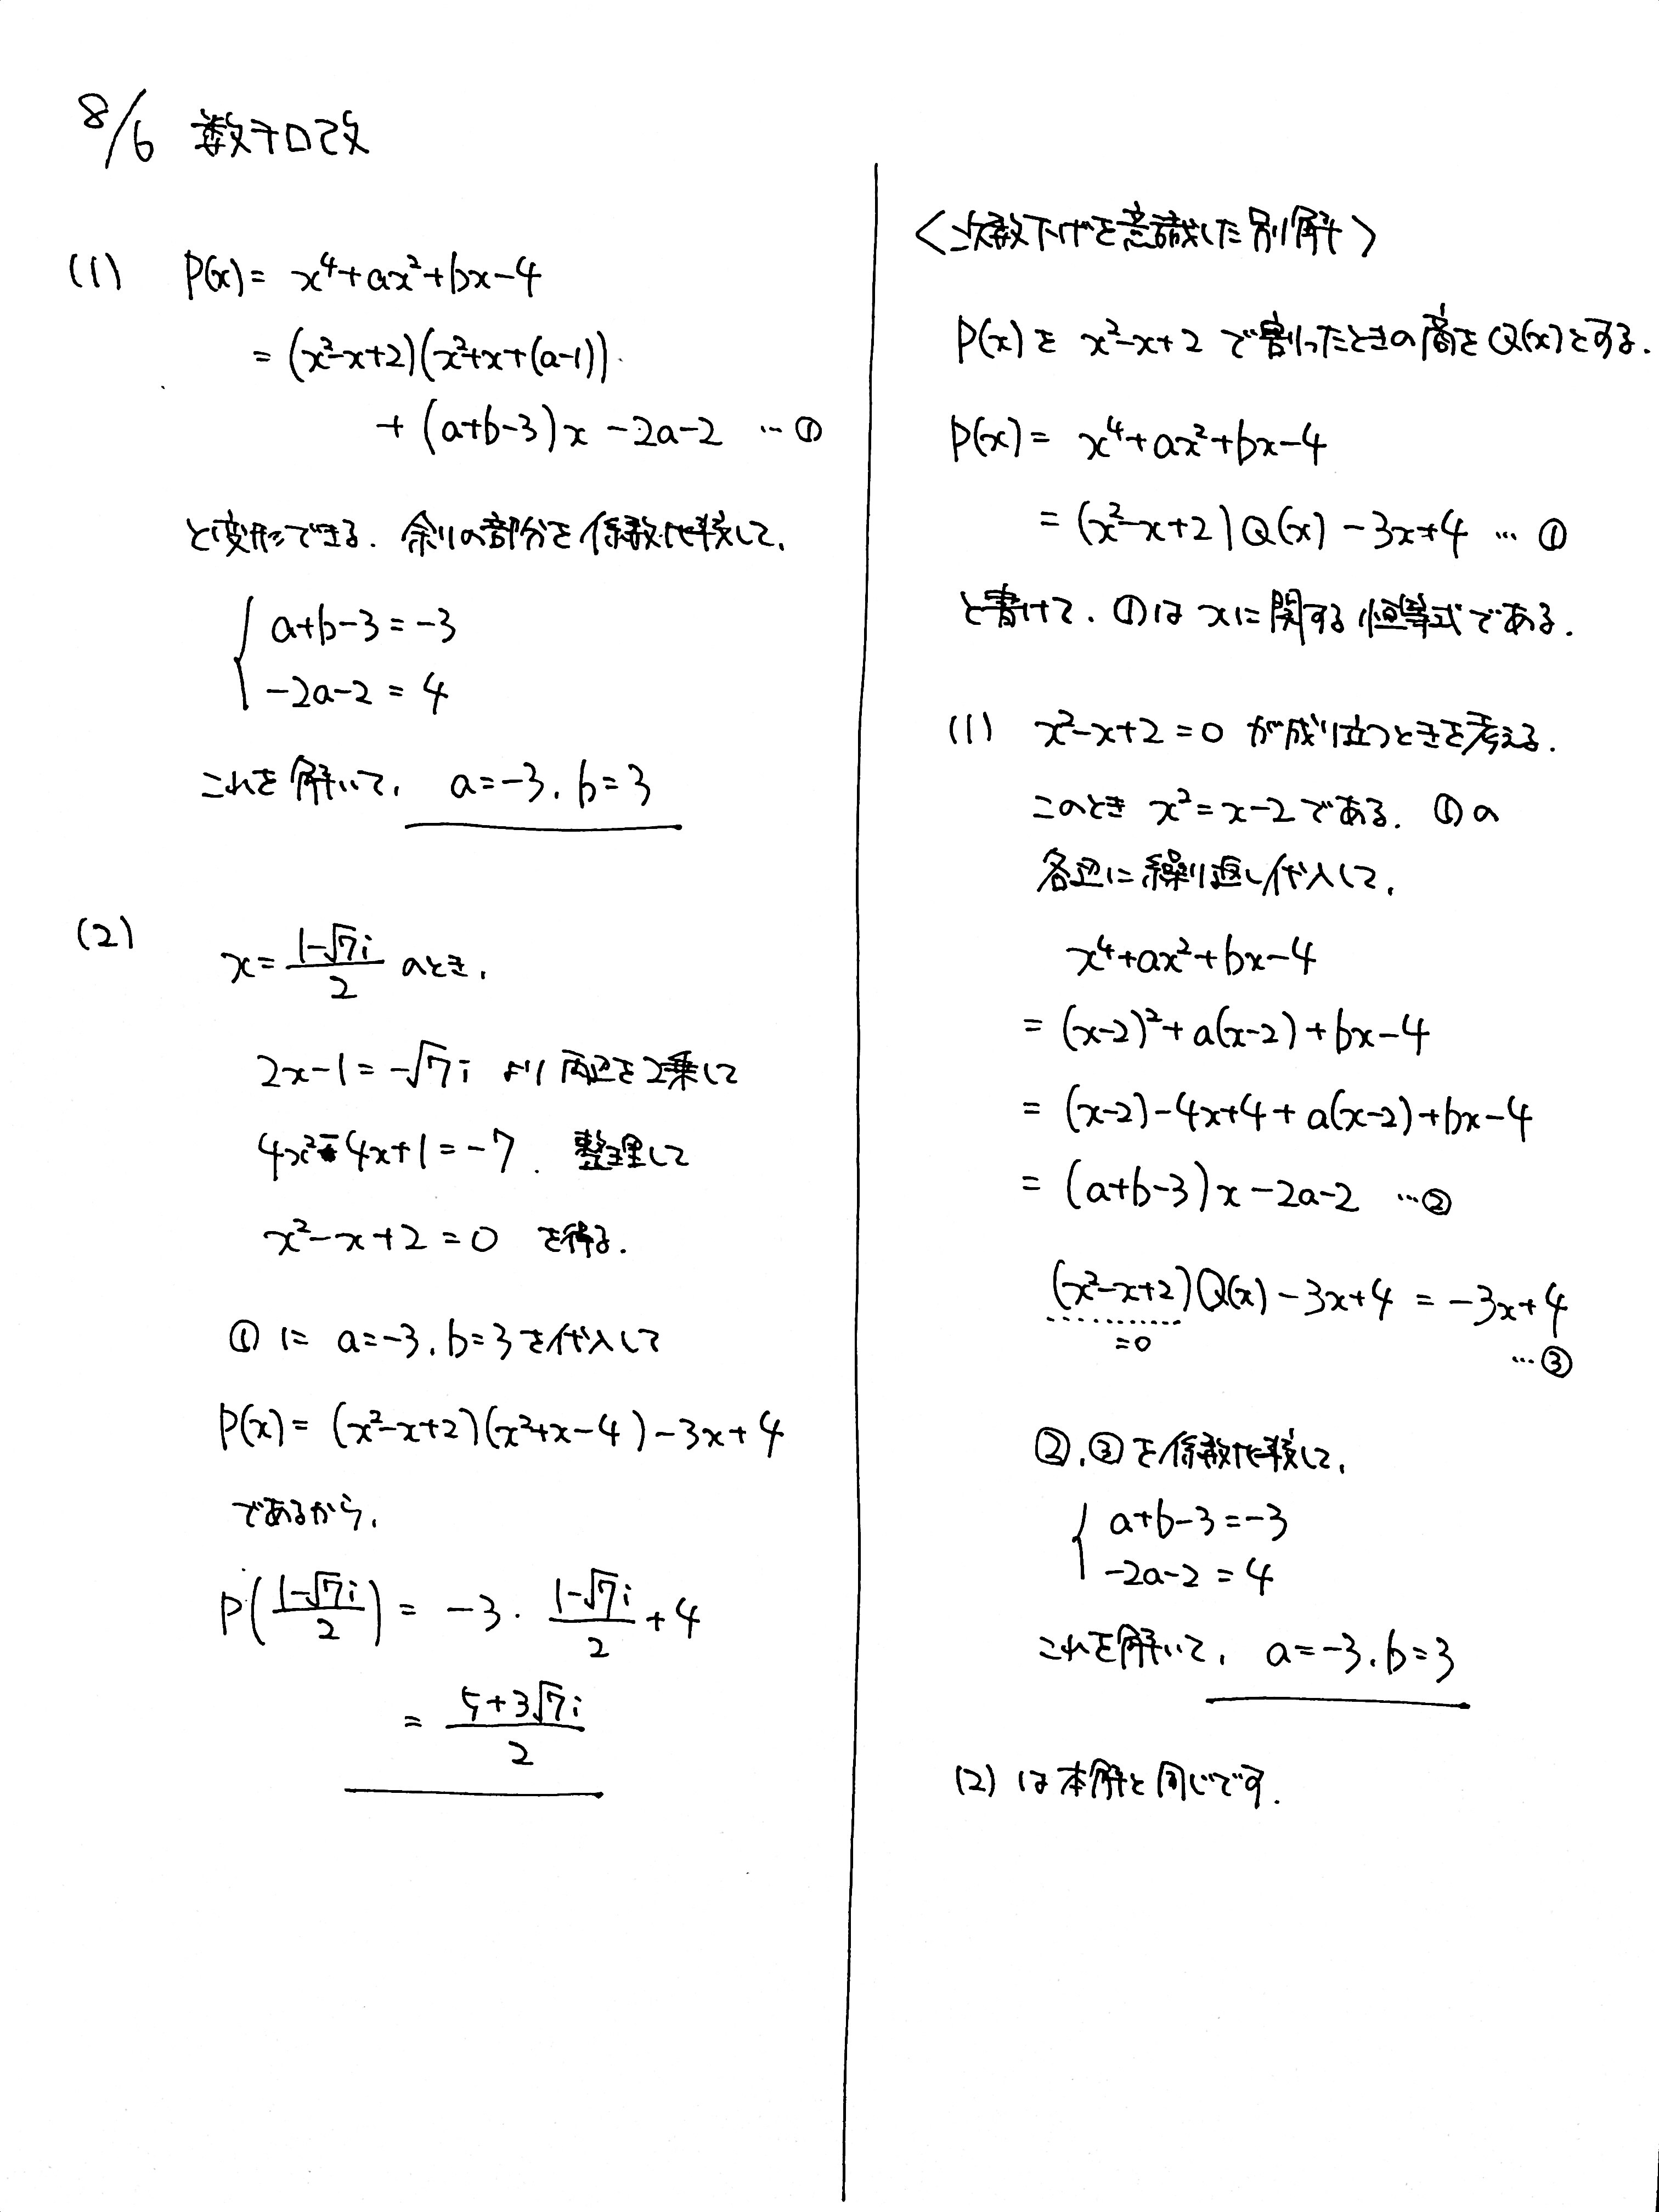 8/6 数テロ改
(1) P(x) = x⁴+ax²+bx-4
= (x²-x+2)(x²+x+(a-1))
+ (a+b-3)x -2a-2 … ①
と変形できる. 余りの部分を係数比較して,
a+b-3 = -3
-2a-2 = 4
これを解いて, a=-3, b=3
(2) x = (1-√7i)/2 のとき,
2x-1 = -√7i より両辺を2乗して
4x²-4x+1 = -7. 整理して
x²-x+2 = 0 を得る.
① に a=-3, b=3 を代入して
P(x) = (x²-x+2)(x²+x-4)-3x+4
であるから,
P((1-√7i)/2) = -3・(1-√7i)/2 + 4
= (5+3√7i)/2
<次数下げを意識した別解>
P(x) を x²-x+2 で割ったときの商を Q(x) とする.
P(x) = x⁴+ax²+bx-4
= (x²-x+2)Q(x) -3x+4 … ①
と書けて, ①は xに関する恒等式である.
(1) x²-x+2=0 が成り立つときを考える.
このとき x²=x-2である. ①の
各辺に繰り返し代入して,
x⁴+ax²+bx-4
= (x-2)²+a(x-2)+bx-4
= (x-2)-4x+4+a(x-2)+bx-4
= (a+b-3)x-2a-2 …②
(x²-x+2)Q(x)-3x+4 = -3x+4
=0
…③
②,③を係数比較して,
a+b-3=-3
-2a-2=4
これを解いて, a=-3, b=3
(2) は本解と同じです.